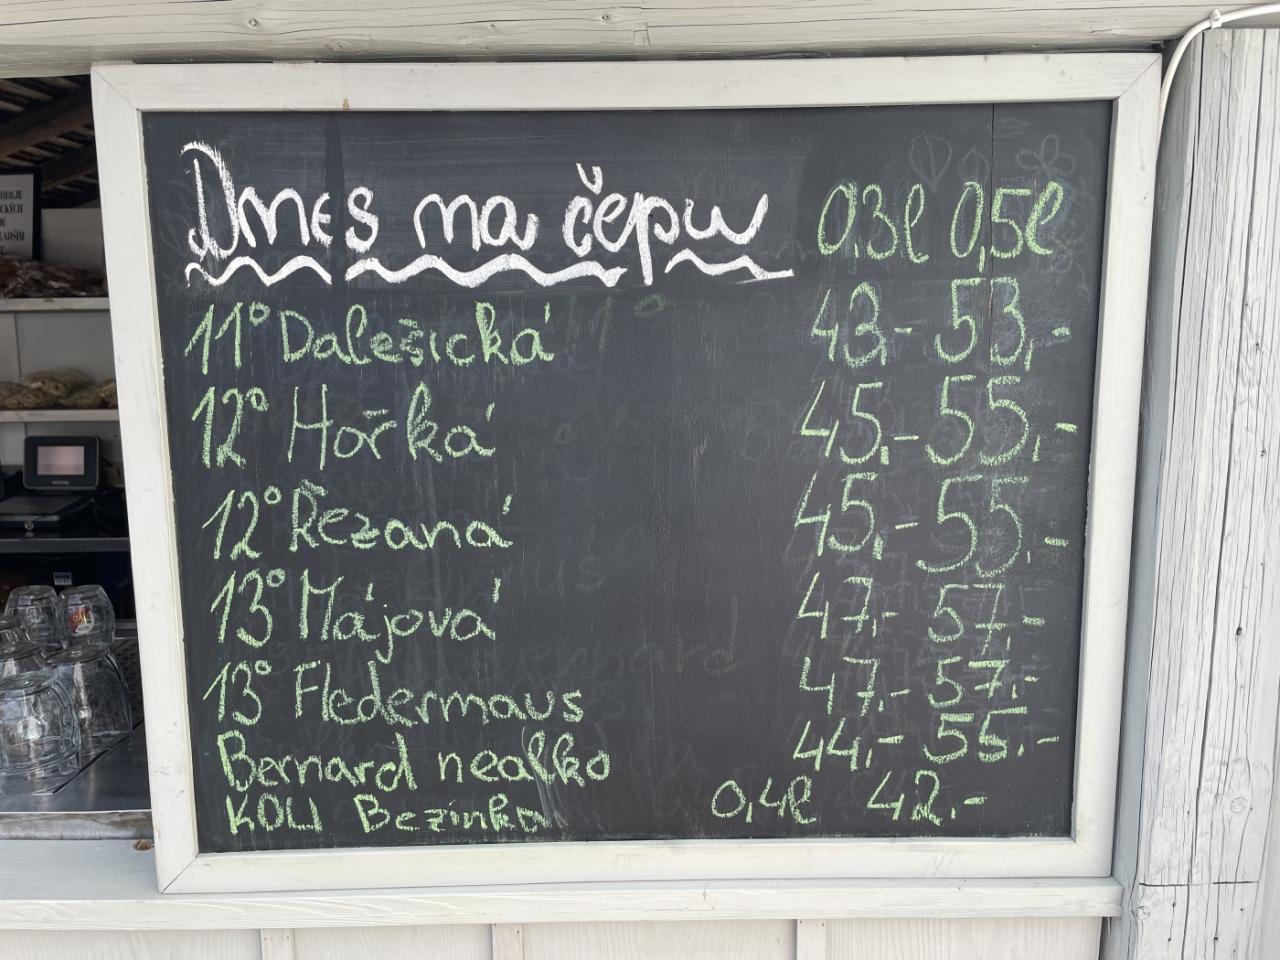 Dnes na čepu 0,3l 0,5l
11° Dalešická 43,- 53,-
12° Hořká 45,- 55,-
12° Řezaná 45,- 55,-
13° Májová 47,- 57,-
13° Fledermaus 47,- 57,-
Bernard nealko 44,- 55,-
KOLI Bezinka 0,4l 42,-